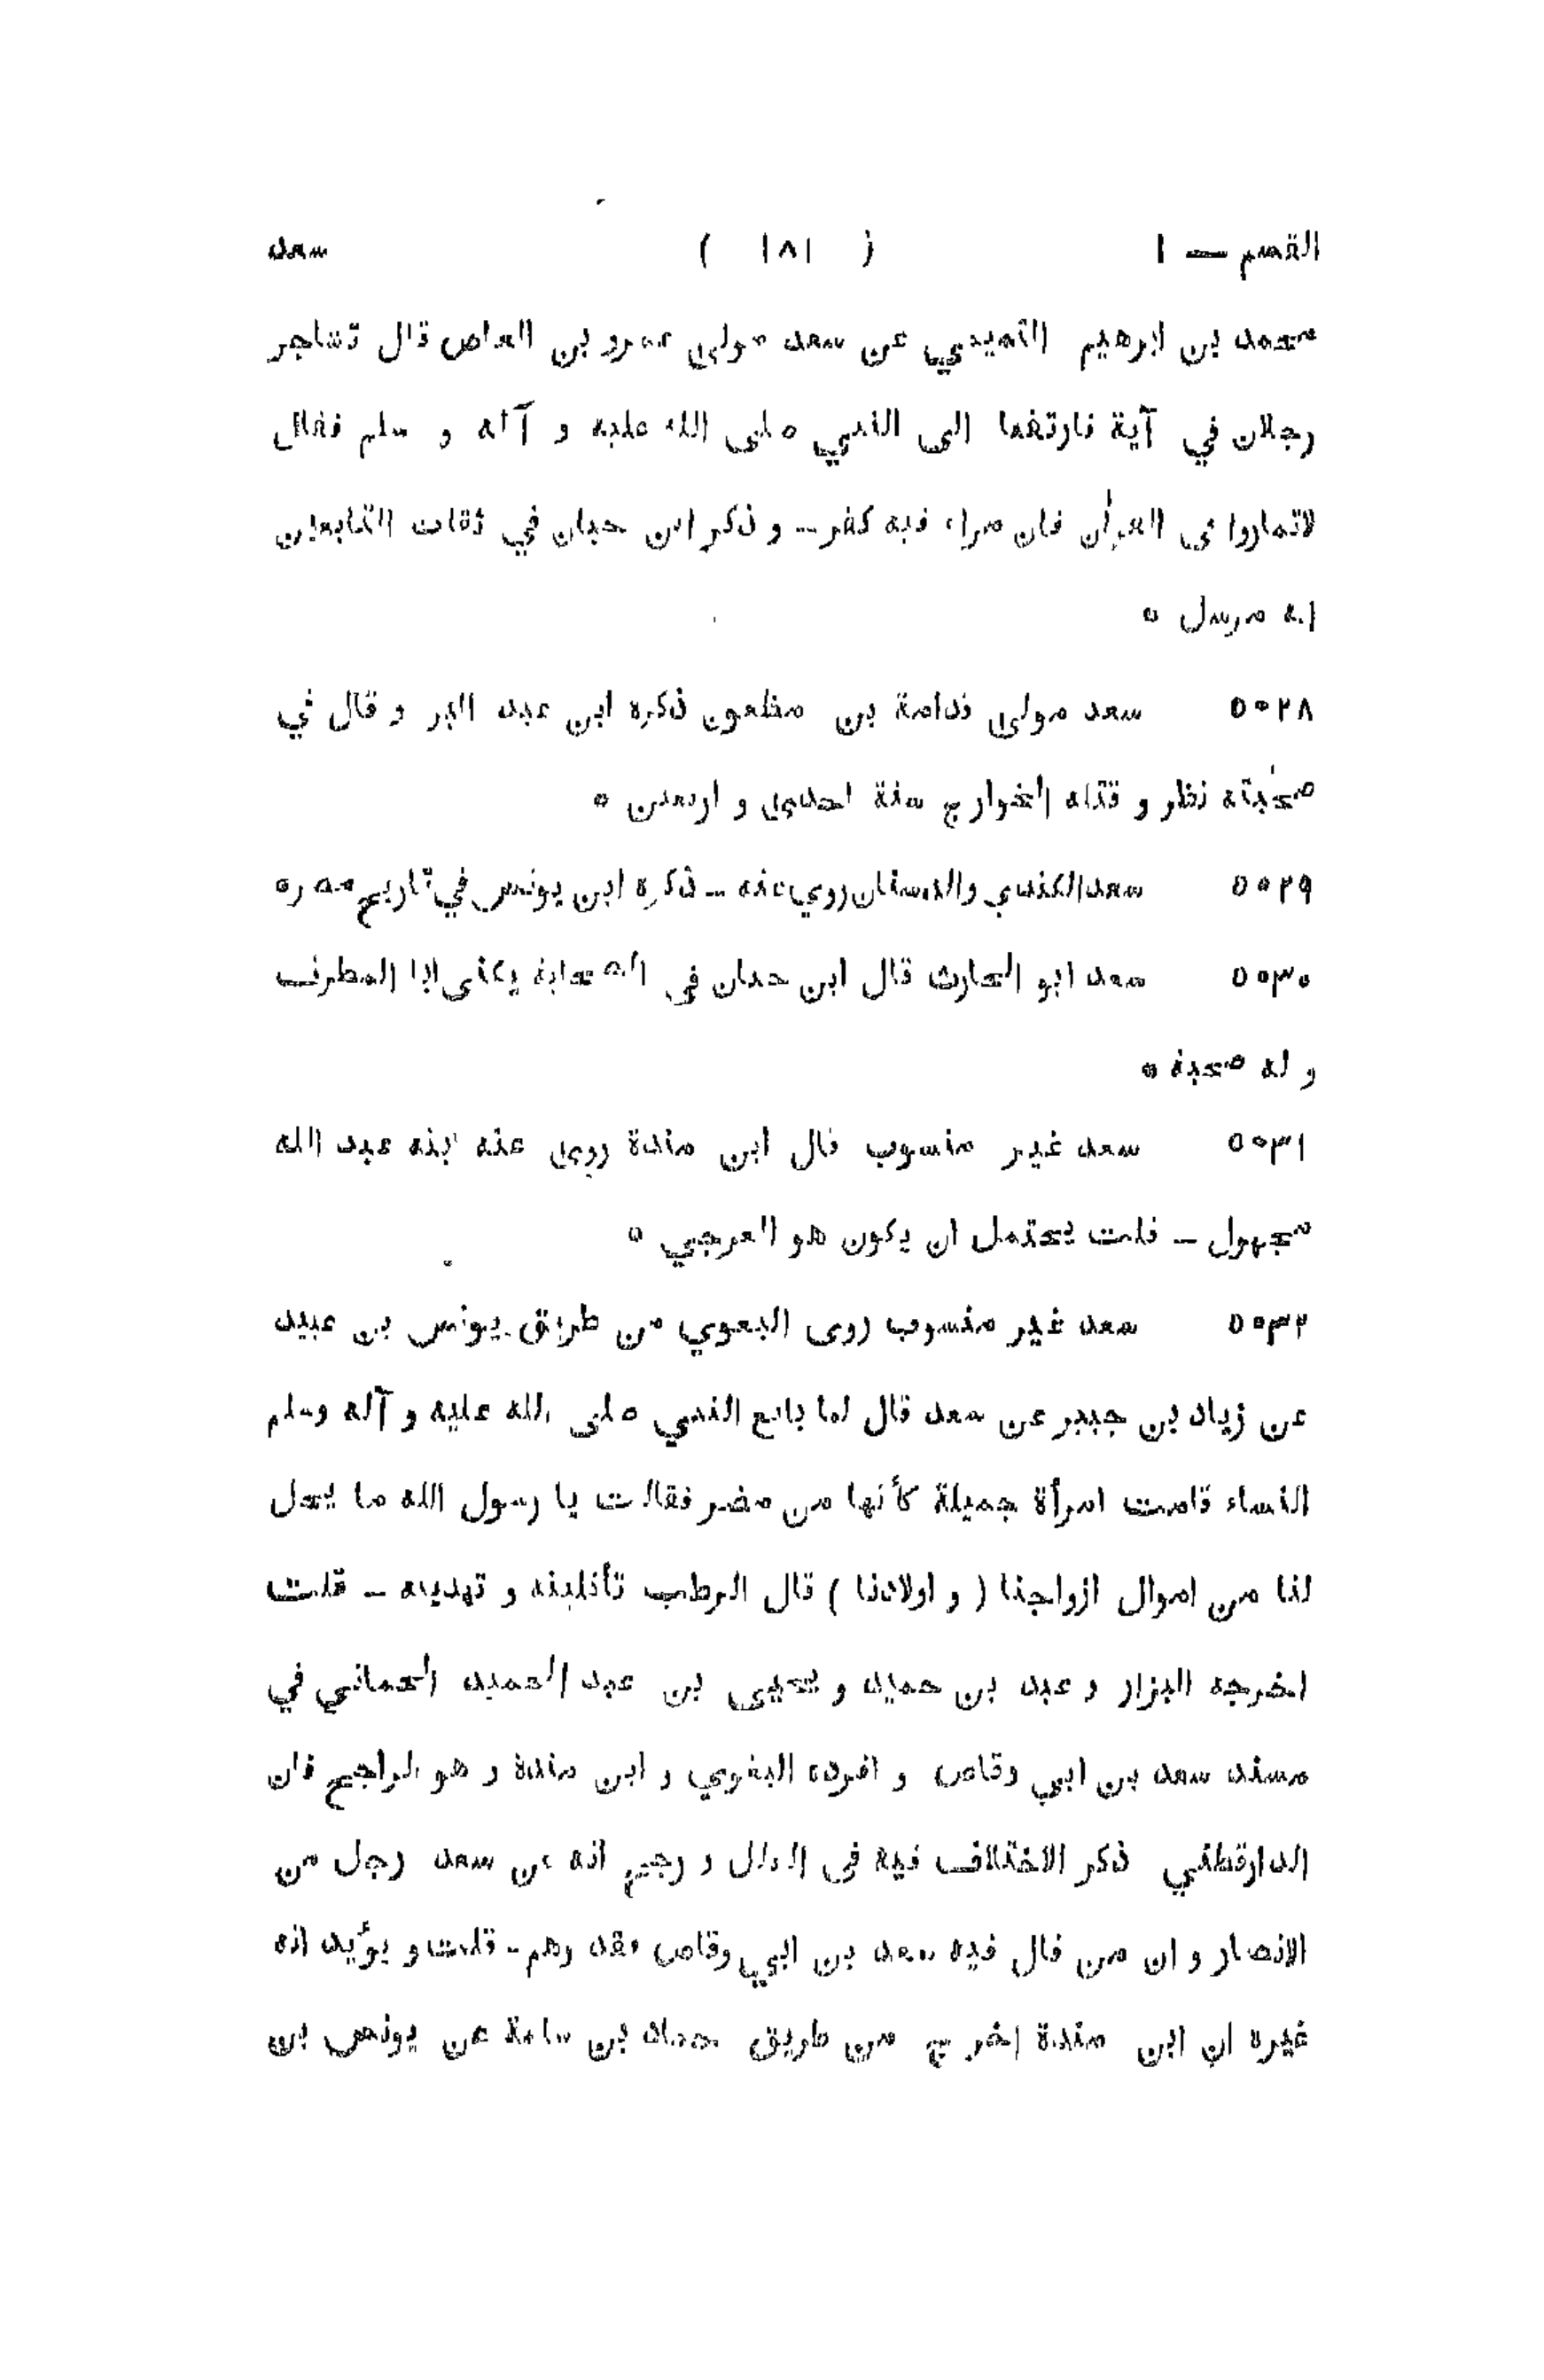 القسم — ١ ( ١٨١ ) سعد
محمد بن ابرهيم التميمي عن سعد مولى عمرو بن العاص قال تشاجر
رجلان في آية فارتفعا الى النبي صلى الله عليه و آله و سلم فقال
لاتماروا فى القرأن فان مراء فيه كفر – و ذكر ابن حبان في ثقات التابعين
انه مرسل ٥
٥٠٢٨ سعد مولى قدامة بن مظعون ذكره ابن عبد البر و قال في
صحبته نظر و قتله الخوارج سنة احدى و اربعين ٥
٥٠٢٩ سعد الكندي والد سنان روي عنه – ذكره ابن يونس في تاريخ مصر ٥
٥٠٣٠ سعد ابو الحارث قال ابن حبان في الصحابة يكنى ابا المطرف
و له صحبة ٥
٥٠٣١ سعد غير منسوب قال ابن مندة روى عنه ابنه عبد الله
مجهول – قلت يحتمل ان يكون هو العرجي ٥
٥٠٣٢ سعد غير منسوب روى البغوي من طريق يونس بن عبيد
عن زياد بن جبير عن سعد قال لما بايع النبي صلى الله عليه و آله وسلم
النساء قامت امرأة جميلة كأنها من مضر فقالت يا رسول الله ما يحل
لنا من اموال ازواجنا ( و اولادنا ) قال الرطب تأكلينه و تهدينه – قلت
اخرجه البزار و عبد بن حميد و يحيى بن عبد الحميد الحماني في
مسند سعد بن ابي وقاص و افرده البغوي و ابن مندة و هو الراجح فان
الدارقطني ذكر الاختلاف فيه فى العلل و رجح انه عن سعد رجل من
الانصار و ان من قال فيه سعد بن ابي وقاص فقد وهم – قلت و يؤيد انه
غيره ان ابن مندة اخرج من طريق حماد بن سلمة عن يونس بن